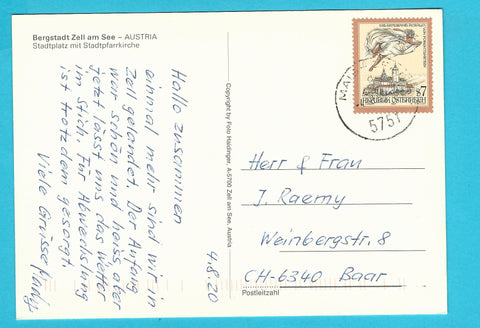 Bergstadt Zell am See – AUSTRIA
Stadtplatz mit Stadtpfarrkirche
Hallo zusammen
einmal mehr sind wir in
Zell gelandet. Der Anfang
war schön und heiss, aber
jetzt lässt uns das Wetter
im Stich. Für Abwechslung
ist trotzdem gesorgt.
Viele Grüsse
4.8.20
Copyright by Foto Haidinger, A-5700 Zell am See, Austria
REPUBLIK ÖSTERREICH
S7
5751
Herr & Frau
J. Raemy
Weinbergstr. 8
CH-6340 Baar
Postleitzahl